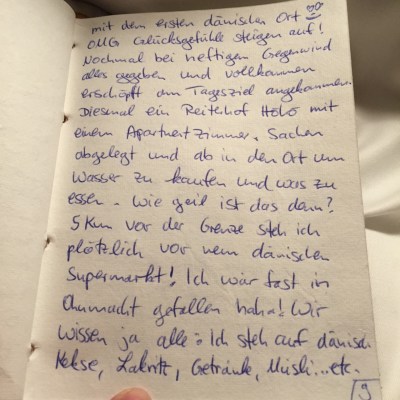 mit dem ersten dänischen Ort
OMG Glücksgefühle steigen auf!
Nochmal bei heftigem Gegenwind
alles gegeben und vollkommen
erschöpft am Tagesziel angekommen.
Diesmal ein Reiterhof mit
einem Apartmentzimmer. Sachen
abgelegt und ab in den Ort um
Wasser zu kaufen und was zu
essen. Wie geil ist das denn?
5 Km vor der Grenze steh ich
plötzlich vor nem dänischen
Supermarkt! Ich wär fast in
Ohnmacht gefallen haha! Wir
wissen ja alle: Ich steh auf dänisch.
Kekse, Lakritz, Getränke, Müsli...etc.
9